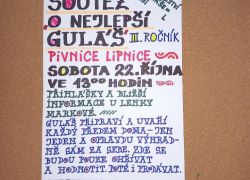 SOUTĚŽ
„O NEJLEPŠÍ
GULÁŠ" III. ROČNÍK
PIVNICE LIPNICE
SOBOTA 22. ŘÍJNA
VE 13⁰⁰ HODIN
PŘIHLÁŠKY A BLIŽŠÍ
INFORMACE U LENKY
MARKOVÉ.
GULÁŠ PŘIPRAVÍ A UVAŘÍ
KAŽDÝ PŘEDEM DOMA-JEN
JEDEN A OPRAVDU VÝHRAD-
NĚ SÁM ZA SEBE. ZDE SE
BUDOU POUZE OHŘÍVAT
A HODNOTIT. POTÉ I PRODÁVAT.